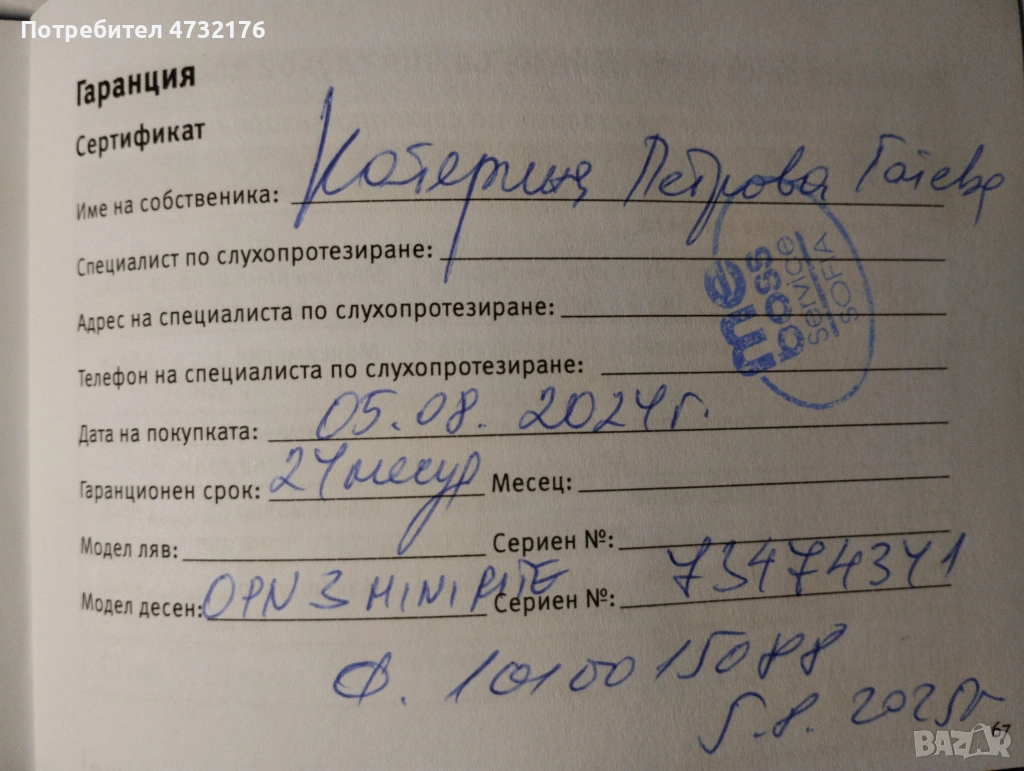 Потребител 4732176
Гаранция
Сертификат
Име на собственика: Катерина Петрова Гатева
Специалист по слухопротезиране:
Адрес на специалиста по слухопротезиране:
Телефон на специалиста по слухопротезиране:
me boss service SOFIA
Дата на покупката: 05.08.2024г.
Гаранционен срок: 24 месец Месец:
Модел ляв: Сериен №:
Модел десен: OPN 3 MINIRITE Сериен №: 73474341
Ф. 1010015088
5.8.2025г
67
BAZAR